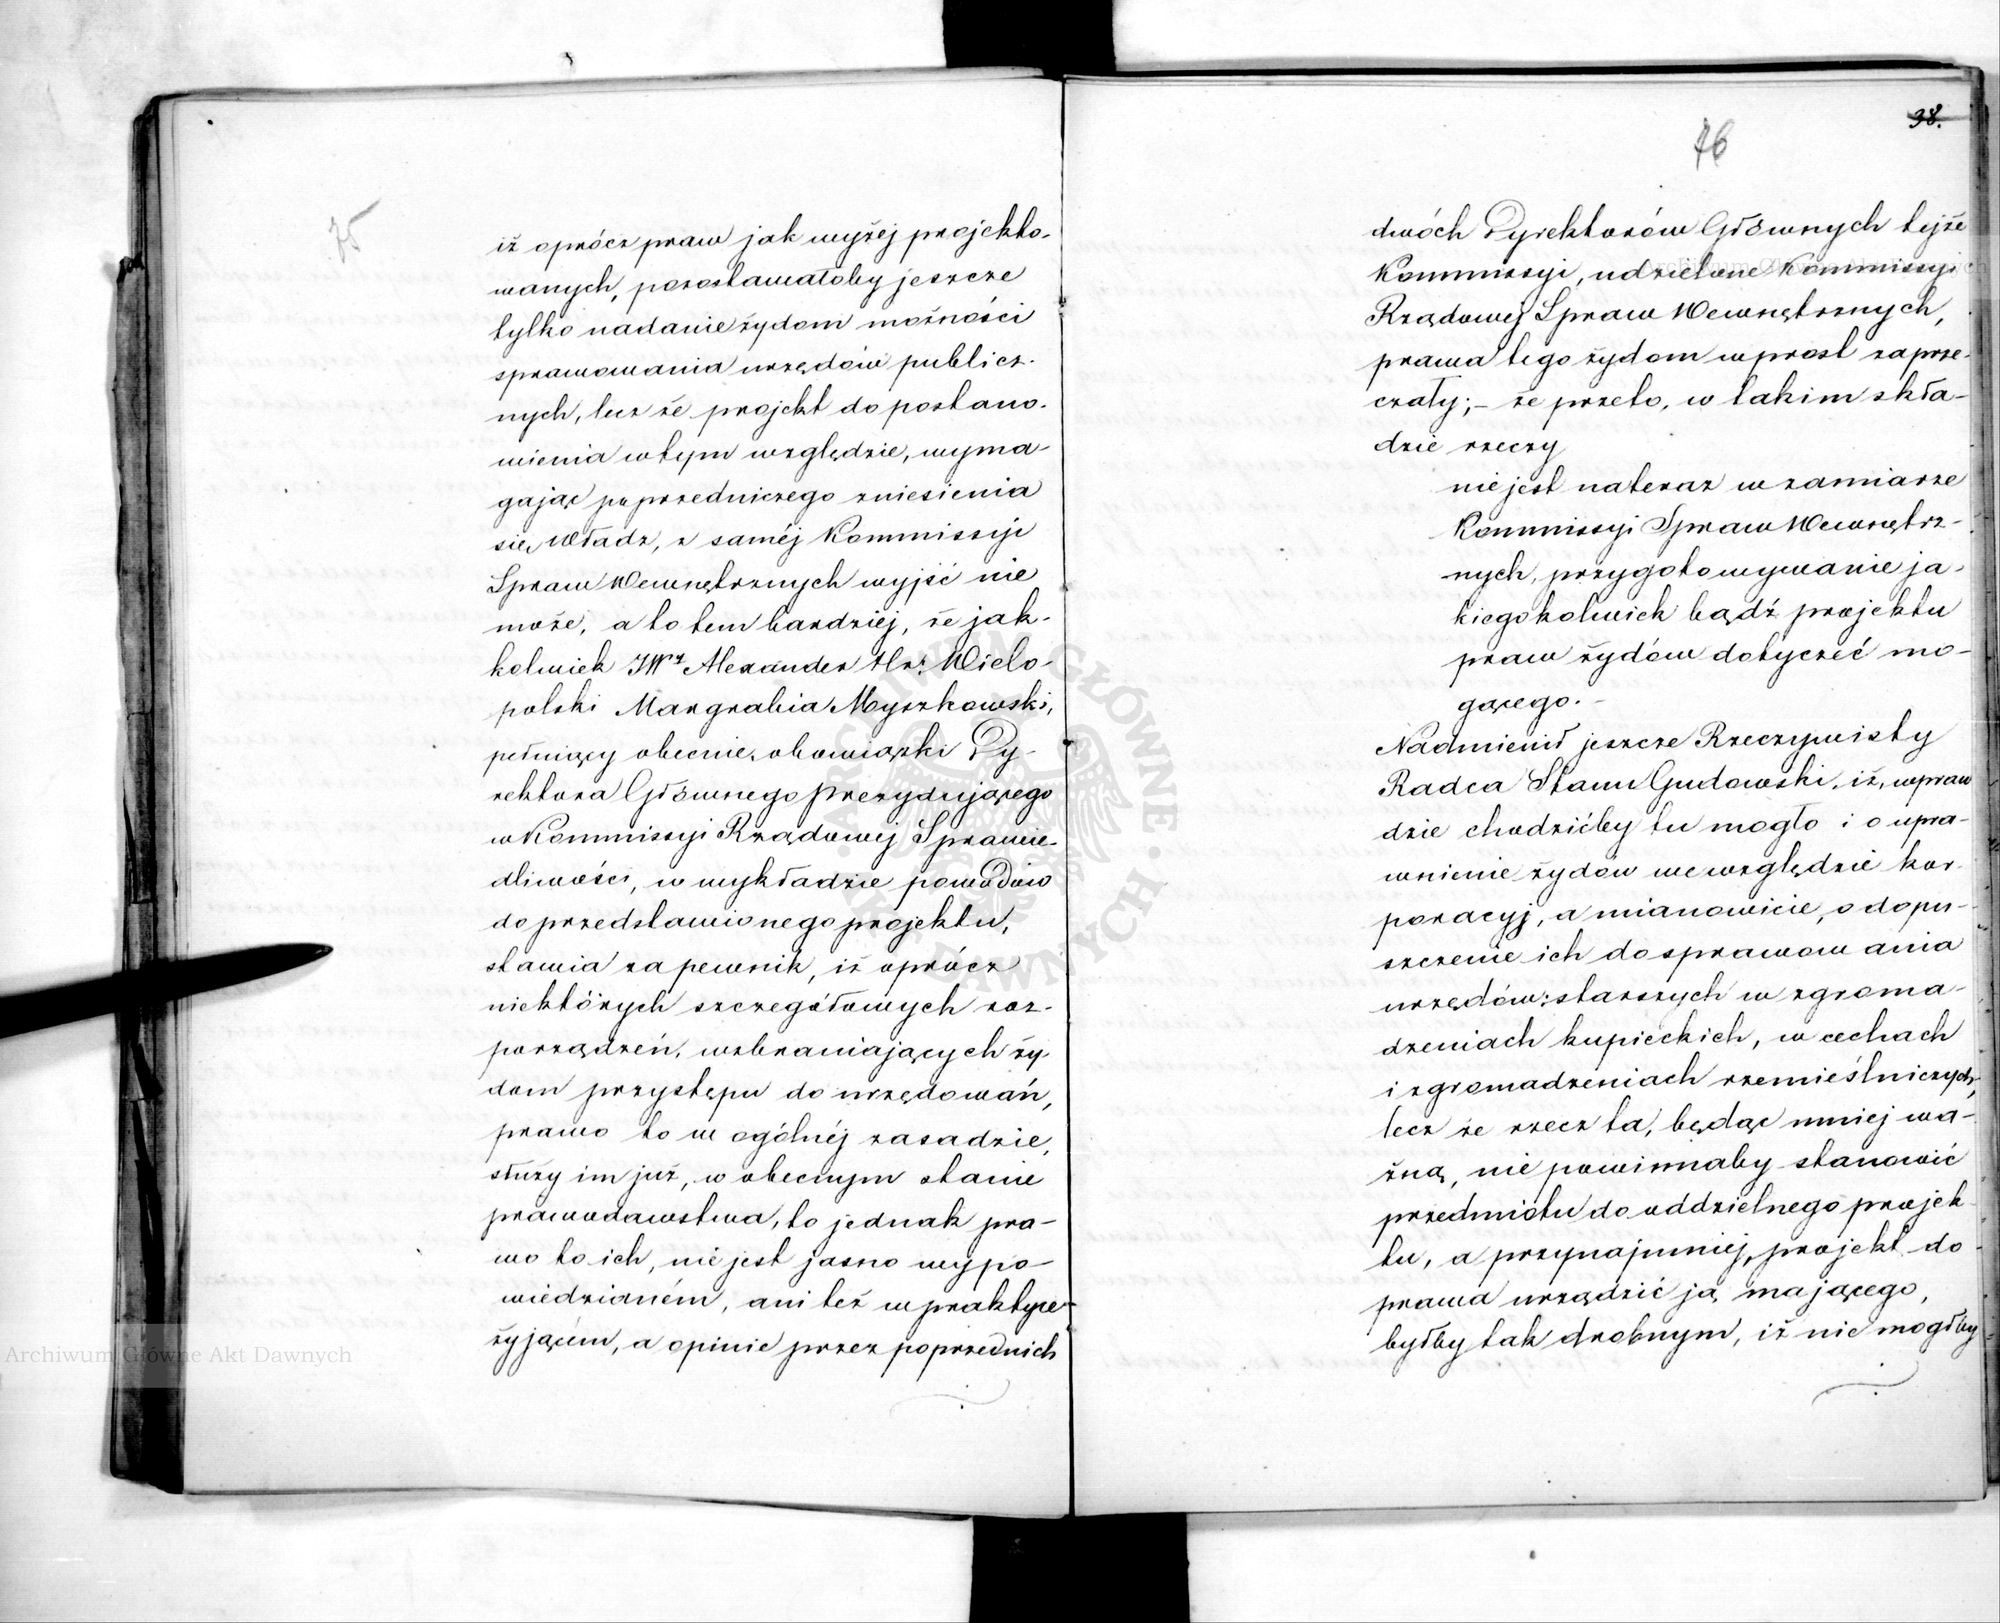 75
iż oprócz praw jak wyżej projekto-
wanych, pozostawałoby jeszcze
tylko nadanie żydom możności
sprawowania urzędów publicz-
nych, lecz że projekt do postano-
wienia w tym względzie, wyma-
gając poprzedniczego zniesienia
się Władz, z saméj Kommissyi
Spraw Wewnętrznych wyjść nie
może, a to tem bardziej, że jak-
kolwiek JWy Alexander Hr: Wielo-
polski Margrabia Myszkowski,
pełniący obecnie, obowiązki Dy-
rektora Głównego Prezydującego
w Kommissyi Rządowej Sprawie-
dliwości, w wykładzie powodów
do przedstawionego projektu,
stawia za pewnik, iż oprócz
niektórych szczegółowych roz-
porządzeń, wzbraniających ży-
dom przystępu do urzędowań,
prawo to w ogólnéj zasadzie,
służy im już, w obecnym stanie
prawodawstwa, to jednak pra-
wo to ich, nie jest jasno wypo-
wiedzianém, ani też w praktyce
żyjącém, a opinie przez poprzednich
38.
76
dwóch Dyrektorów Głównych tejże
Kommissyi, udzielone Kommissyi
Rządowej Spraw Wewnętrznych,
prawa tego żydom wprost zaprze-
czały; – że przeto, w takim skła-
dzie rzeczy
nie jest na teraz w zamiarze
Kommissyi Spraw Wewnętrz-
nych, przygotowywanie ja-
kiegokolwiek bądź projektu
praw żydów dotyczeć mo-
gącego. –
Nadmienił jeszcze Rzeczywisty
Radca Stanu Gudowski, iż, wpraw
dzie chodzićby tu mogło i o upra-
wnienie żydów we względzie kor-
poracyj, a mianowicie, o dopu-
szczenie ich do sprawowania
urzędów: starszych w zgroma-
dzeniach kupieckich, w cechach
i zgromadzeniach rzemieślniczych,
lecz że rzecz ta, będąc mniej wa-
żną, nie powinnaby stanowić
przedmiotu do oddzielnego projek-
tu, a przynajmniej, projekt do
prawa urządzić ją mającego,
byłby tak drobnym, iż nie mogłby
Archiwum Główne Akt Dawnych
Archiwum Główne Akt Dawnych
ARCHIWUM GŁÓWNE AKT DAWNYCH